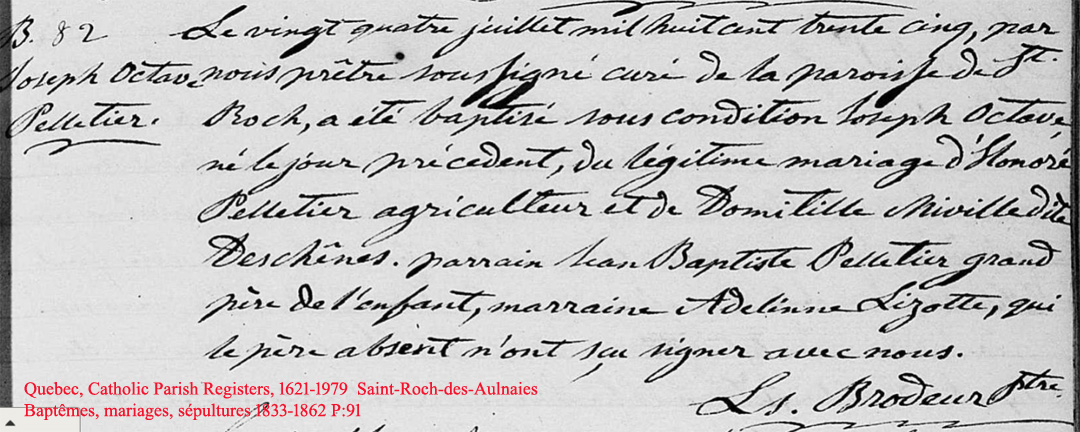 B. 82
Joseph Octave
Pelletier.
Le vingt quatre juillet mil huit cent trente cinq, par
nous prêtre soussigné curé de la paroisse de St.
Roch, a été baptisé sous condition Joseph Octave,
né le jour précedent, du légitime mariage d'Honoré
Pelletier agriculteur et de Domitille Miville dite
Deschênes. parrain Jean Baptiste Pelletier grand
père de l'enfant, marraine Adelinne Lizotte, qui
le père absent n'ont sçu signer avec nous.
Ls. Brodeur Ptre.
Quebec, Catholic Parish Registers, 1621-1979 Saint-Roch-des-Aulnaies
Baptêmes, mariages, sépultures 1833-1862 P:91